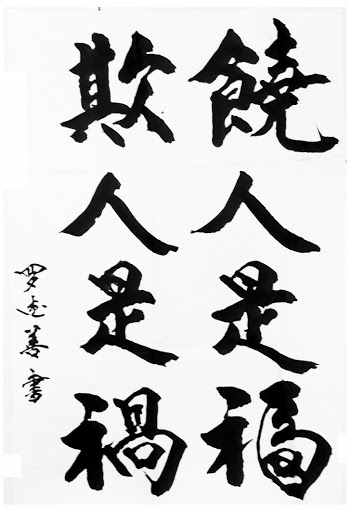 饒人是福
欺人是禍
罗志善書